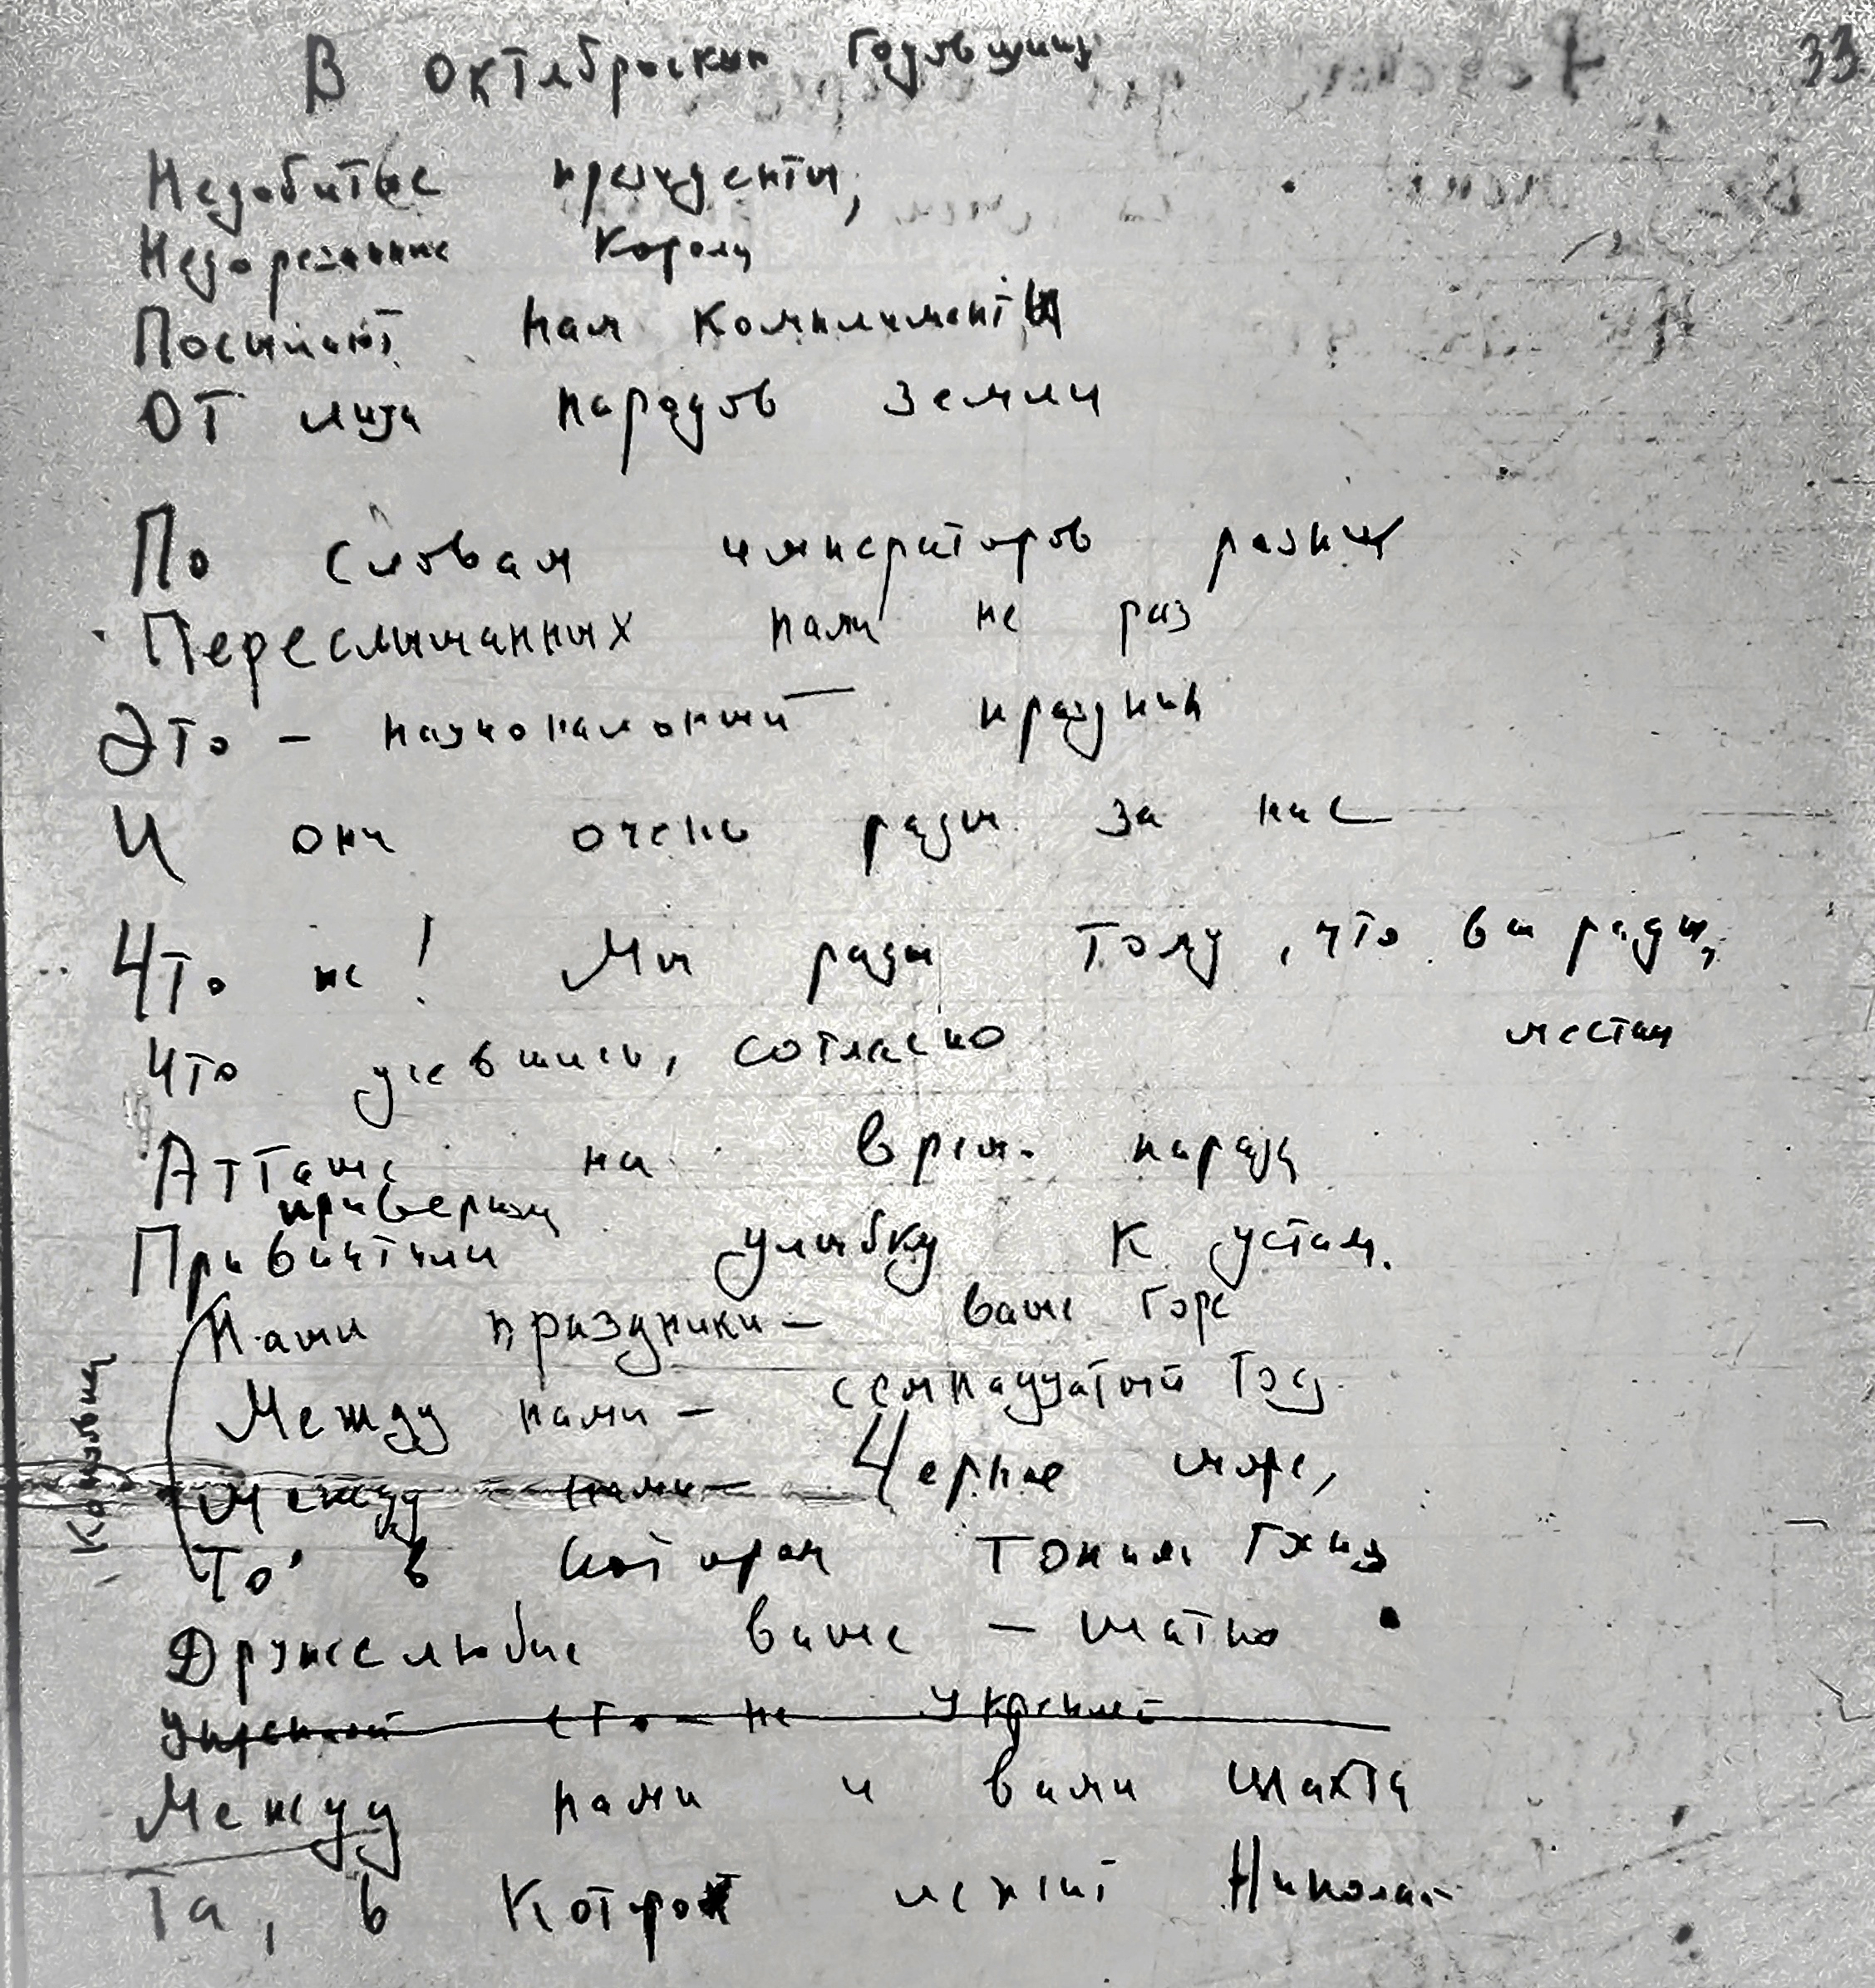 В октябрьскую годовщину
33
Недобитые президенты,
Недорезанные короли
Посылают нам комплименты
От лица народов земли
По словам императоров разных
Переслышанных нами не раз
Это – национальный праздник
И они очень рады за нас
Что ж! Мы рады тому, что вы рады,
Что усевшись, согласно местам
Атташе на время парада
привержен
Привинтили улыбку к устам.
Наши праздники – ваше горе
Между нами – семнадцатый год
Между нами – Черное море,
То, в котором тонили
Дружелюбие ваше – шатко
это – не укрепит
Между нами и вами шахта
Та, в которой лежит Николай